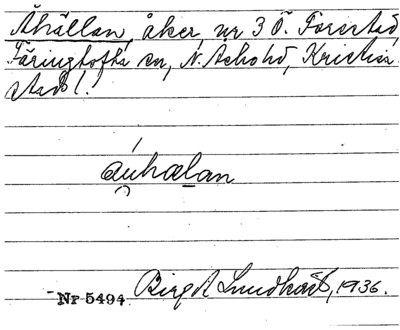 Åhällan, åker, nr 3 Ö. Forestad,
Färingtofta sn, N. Åsbo hd, Kristian-
stads l.
áuhælan
Nr 5494 Birgit Lundkvist, 1936.